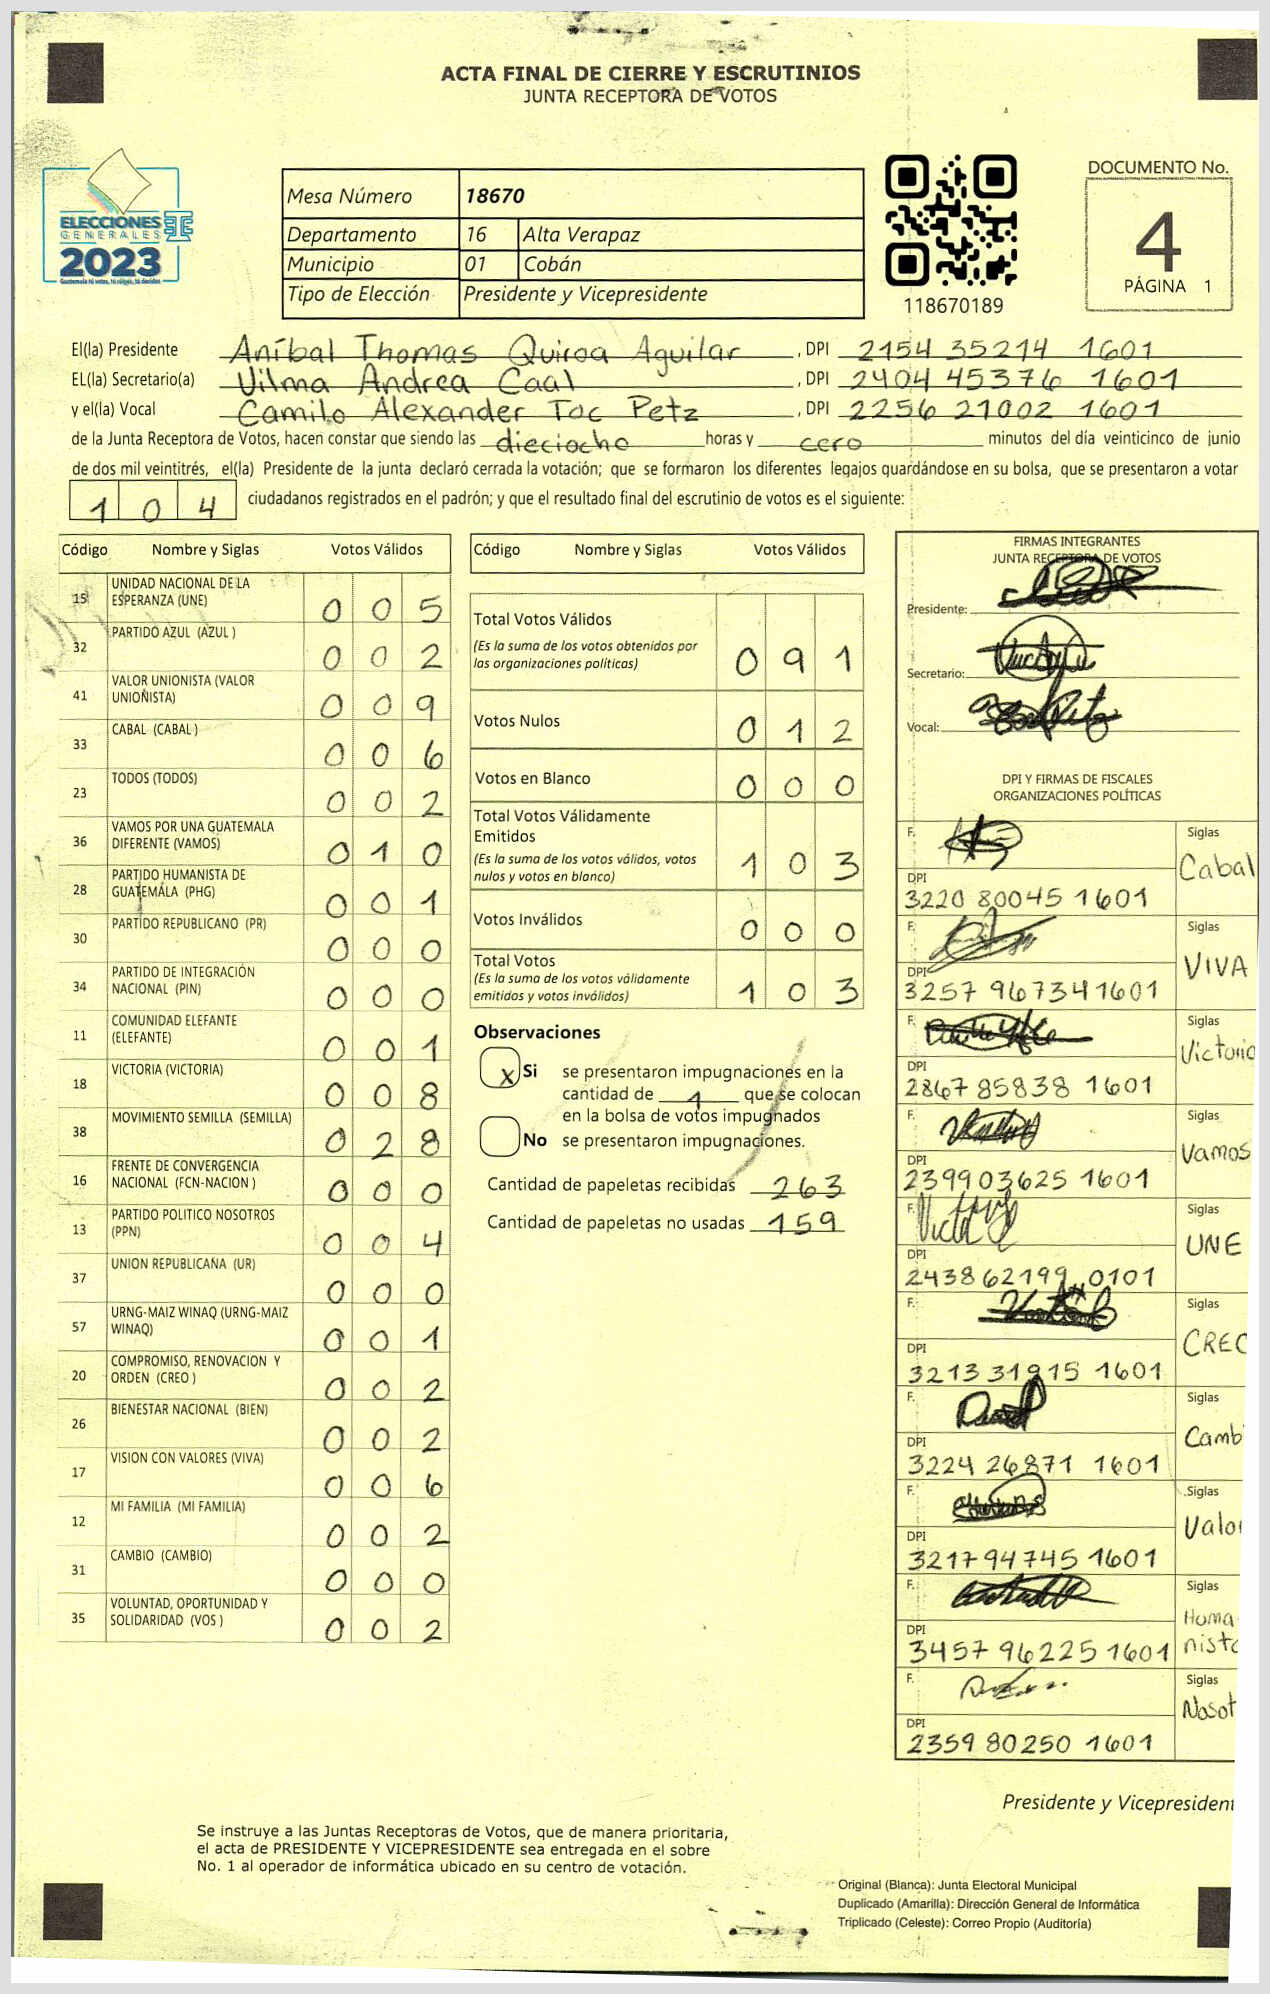 ACTA FINAL DE CIERRE Y ESCRUTINIOS
JUNTA RECEPTORA DE VOTOS
ELECCIONES
GENERALES
2023
Guatemala tú votas, tú eliges, tú decides
Mesa Número 18670
Departamento 16 Alta Verapaz
Municipio 01 Cobán
Tipo de Elección Presidente y Vicepresidente
118670189
DOCUMENTO No.
4
PÁGINA 1
El(la) Presidente Aníbal Thomas Quiroa Aguilar, DPI 2154 35214 1601
EL(la) Secretario(a) Vilma Andrea Caal, DPI 2404 45376 1601
y el(la) Vocal Camilo Alexander Toc Petz, DPI 2256 21002 1601
de la Junta Receptora de Votos, hacen constar que siendo las dieciocho horas y cero minutos del día veinticinco de junio
de dos mil veintitrés, el(la) Presidente de la junta declaró cerrada la votación; que se formaron los diferentes legajos guardándose en su bolsa, que se presentaron a votar
104 ciudadanos registrados en el padrón; y que el resultado final del escrutinio de votos es el siguiente:
Código Nombre y Siglas Votos Válidos
15 UNIDAD NACIONAL DE LA ESPERANZA (UNE) 005
32 PARTIDO AZUL (AZUL ) 002
41 VALOR UNIONISTA (VALOR UNIONISTA) 009
33 CABAL (CABAL ) 006
23 TODOS (TODOS) 002
36 VAMOS POR UNA GUATEMALA DIFERENTE (VAMOS) 010
28 PARTIDO HUMANISTA DE GUATEMALA (PHG) 001
30 PARTIDO REPUBLICANO (PR) 000
34 PARTIDO DE INTEGRACIÓN NACIONAL (PIN) 000
11 COMUNIDAD ELEFANTE (ELEFANTE) 001
18 VICTORIA (VICTORIA) 008
38 MOVIMIENTO SEMILLA (SEMILLA) 028
16 FRENTE DE CONVERGENCIA NACIONAL (FCN-NACION ) 000
13 PARTIDO POLITICO NOSOTROS (PPN) 004
37 UNION REPUBLICANA (UR) 000
57 URNG-MAIZ WINAQ (URNG-MAIZ WINAQ) 001
20 COMPROMISO, RENOVACION Y ORDEN (CREO ) 002
26 BIENESTAR NACIONAL (BIEN) 002
17 VISION CON VALORES (VIVA) 006
12 MI FAMILIA (MI FAMILIA) 002
31 CAMBIO (CAMBIO) 000
35 VOLUNTAD, OPORTUNIDAD Y SOLIDARIDAD (VOS ) 002
Código Nombre y Siglas Votos Válidos
Total Votos Válidos 091
(Es la suma de los votos obtenidos por
las organizaciones políticas)
Votos Nulos 012
Votos en Blanco 000
Total Votos Válidamente
Emitidos 103
(Es la suma de los votos válidos, votos
nulos y votos en blanco)
Votos Inválidos 000
Total Votos 103
(Es la suma de los votos válidamente
emitidos y votos inválidos)
Observaciones
x Si se presentaron impugnaciones en la
cantidad de 1 que se colocan
en la bolsa de votos impugnados
No se presentaron impugnaciones.
Cantidad de papeletas recibidas 263
Cantidad de papeletas no usadas 159
FIRMAS INTEGRANTES
JUNTA RECEPTORA DE VOTOS
Presidente:
Secretario:
Vocal:
DPI Y FIRMAS DE FISCALES
ORGANIZACIONES POLÍTICAS
F. Siglas Cabal
DPI 3220 80045 1601
F. Siglas VIVA
DPI 3257 96734 1601
F. Siglas Victoria
DPI 2867 85838 1601
F. Siglas Vamos
DPI 2399 03625 1601
F. Siglas UNE
DPI 2438 62199 0101
F. Siglas CREO
DPI 3213 31915 1601
F. Siglas Camb
DPI 3224 26871 1601
F. Siglas Valor
DPI 3217 94745 1601
F. Siglas Humanista
DPI 3457 96225 1601
F. Siglas Nosot
DPI 2359 80250 1601
Presidente y Vicepresident
Se instruye a las Juntas Receptoras de Votos, que de manera prioritaria,
el acta de PRESIDENTE Y VICEPRESIDENTE sea entregada en el sobre
No. 1 al operador de informática ubicado en su centro de votación.
Original (Blanca): Junta Electoral Municipal
Duplicado (Amarilla): Dirección General de Informática
Triplicado (Celeste): Correo Propio (Auditoría)